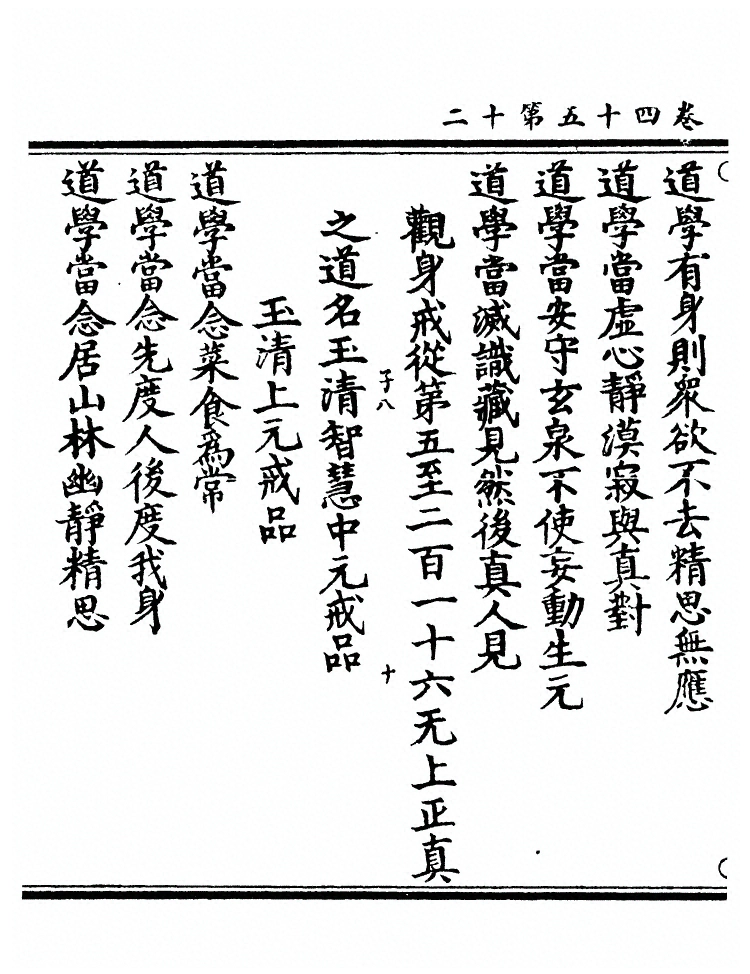 卷四十五第十二
道學有身則衆欲不去精思無應
道學當虛心靜漠寂與真對
道學當安守玄泉不使妄動生元
道學當滅識藏見然後真人見
觀身戒從第五至二百一十六无上正真
子八
十
之道名玉清智慧中元戒品
玉清上元戒品
道學當念菜食爲常
道學當念先度人後度我身
道學當念居山林幽靜精思